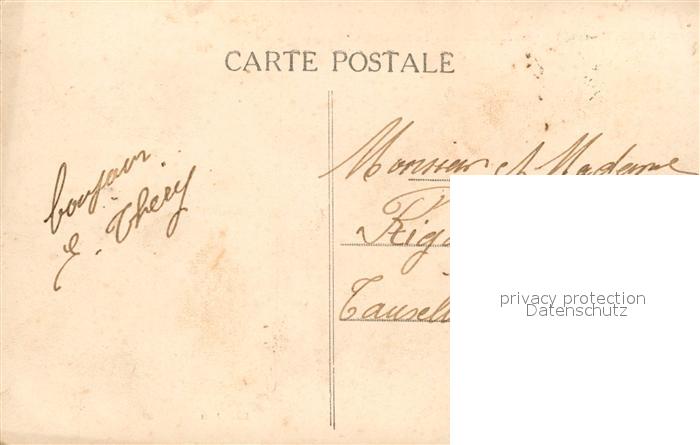 CARTE POSTALE
bonjour
E. Thery
Monsieur et Madame
privacy protection
Datenschutz